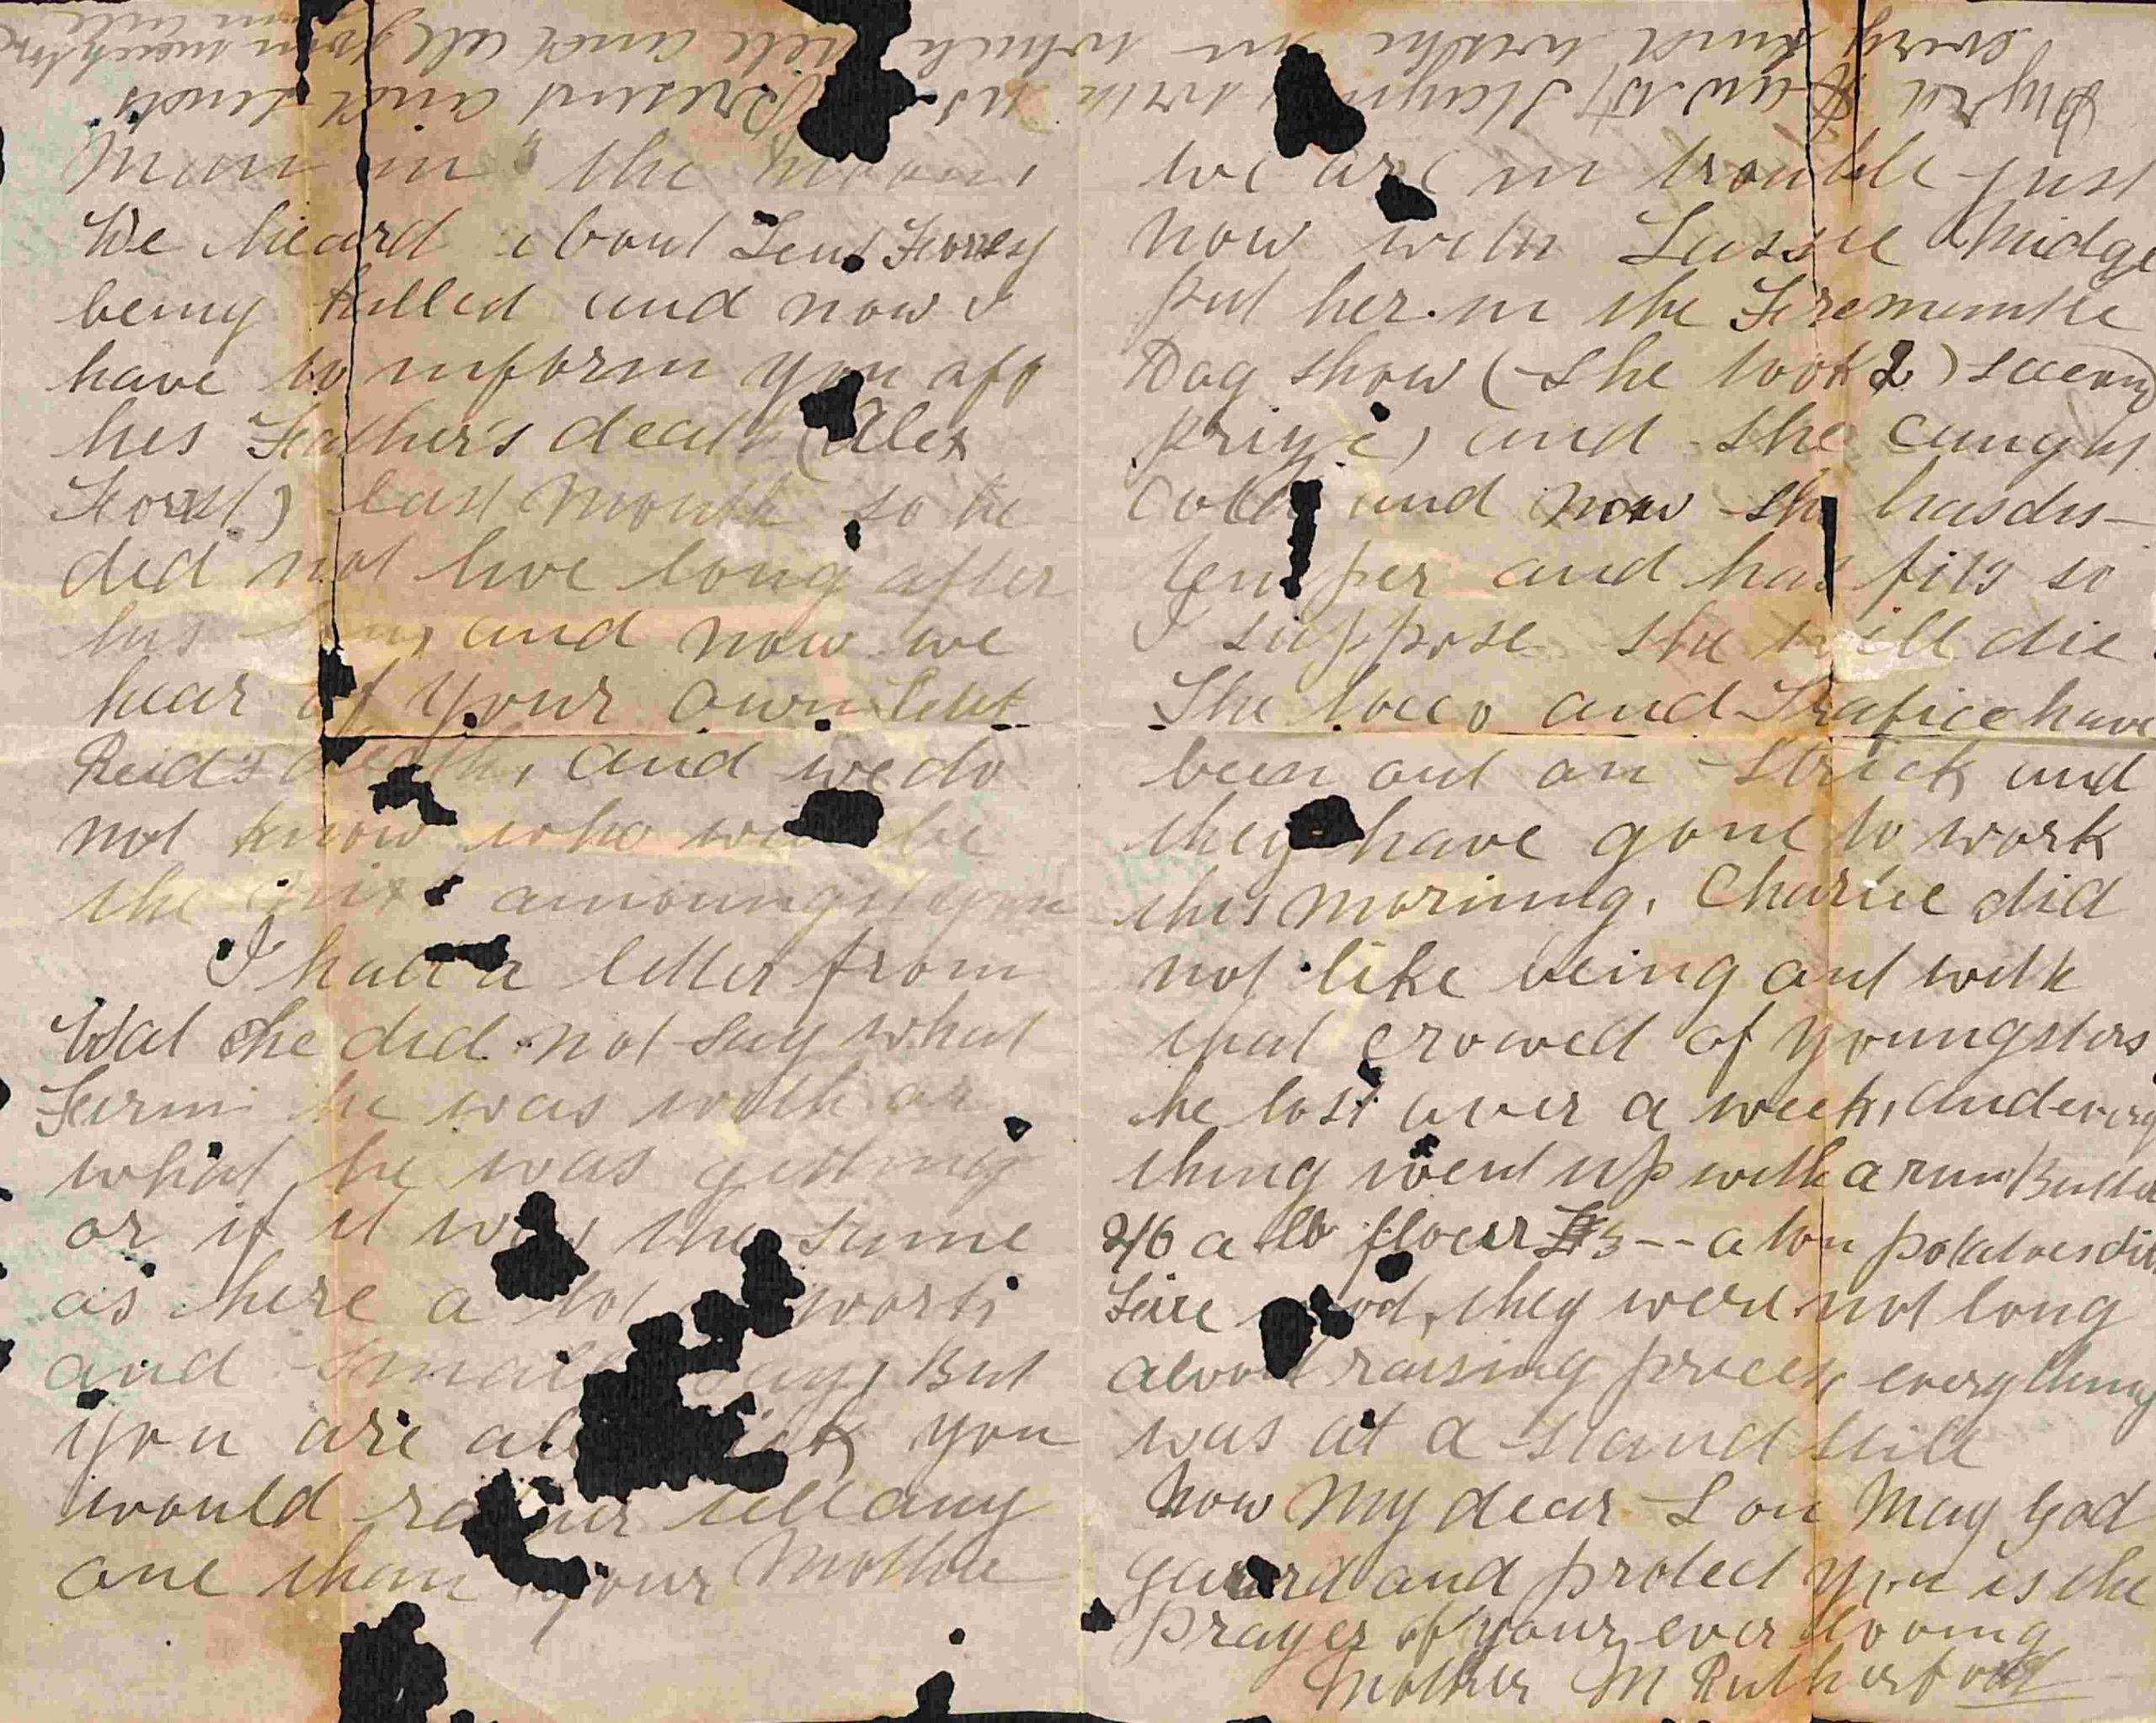 Man in the moon,
We heard about Leut Forrest
being killed and now I
have to inform you off
his Father's death (Alex
Forrest) last month so he
did not live long after
his and now we
hear of your own Leut
Reid's death, and we do
not know who will be
the next amoungst you
I had a letter from
Wal he did not say what
Firm he was with or
what he was getting
or if it was the same
as here a lot worts
and small pay, But
you are all you
would rather tell any
one than your Mother
we are in trouble just
now with Lassie Midge
put her in the Firemantle
Dog show (she took 2) second
prize) and she caught
cold and now she has dis-
temper and has fits so
I suppose she will die.
The loco and Trafice have
been out on strick and
they have gone to work
this morning. Charlie did
not like being out with
that crowed of youngsters
he lost over a week, and every
thing went up with a run Butter
2/6 a lb flour £3-- a ton potatoes
they were not long
about raising prices, everything
was at a stand still
Now My dear Son May God
guard and protect you is the
prayer of your ever loving
Mother M Rutherford
Present and sends
every kind wishe in which